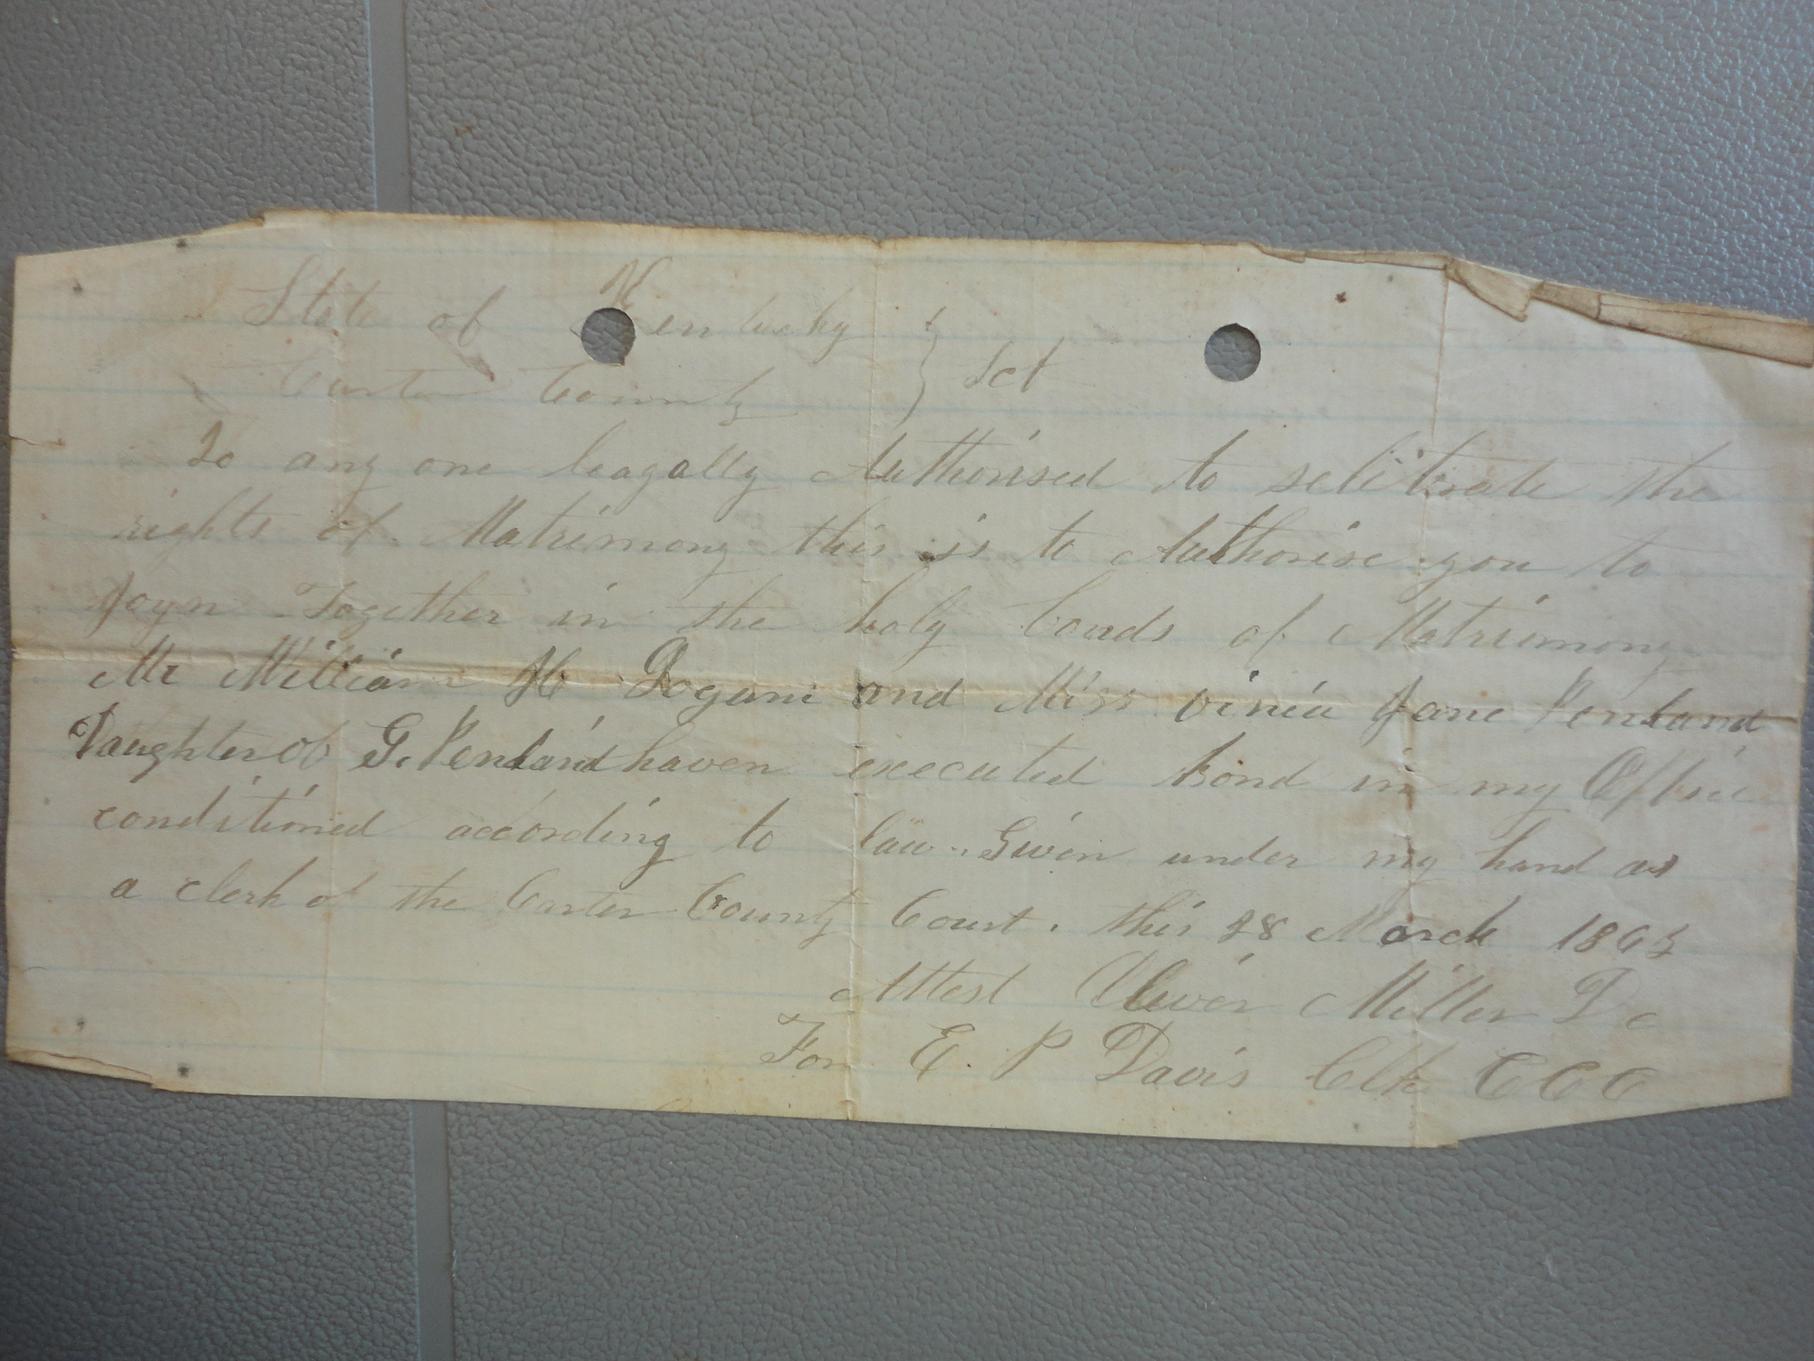 State of Kentucky } Sct
Carter County
To any one leagally Authorised to selibrate the
rights of Matrimony this is to Authorise you to
Joyn Together in the holy bonds of Matrimony
Mr William H Logani and Miss vinia Jane Penland
Daughter of G. Penland haven executed bond in my Office
conditioned according to law. Given under my hand as
a clerk of the Carter County Court. this 28 March 1863
Attest Oliver Miller Dc
For E. P Davis Clk CCC